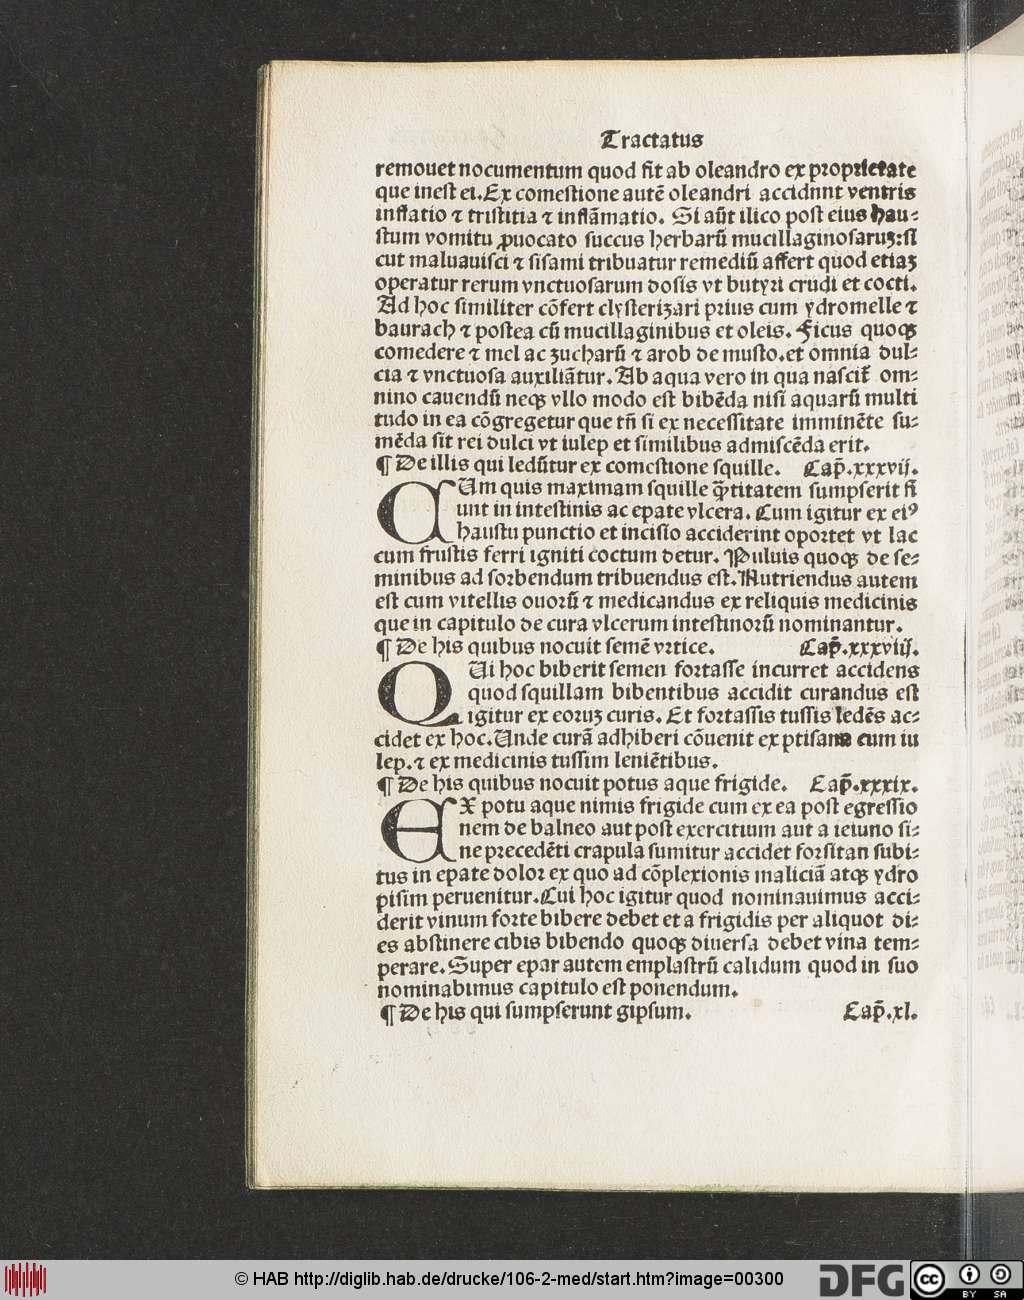 Tractatus
remouet nocumentum quod fit ab oleandro ex proprietate
que inest ei. Ex comestione autē oleandri accidnnt ventris
inflatio ⁊ tristitia ⁊ inflāmatio. Si aūt ilico post eius hau⸗
stum vomitu ꝓuocato succus herbarū mucillaginosaruꝫ: si
cut maluauisci ⁊ sisami tribuatur remediū affert quod etiaꝫ
operatur rerum vnctuosarum dosis vt butyri crudi et cocti.
Ad hoc similiter cōfert clysterizari prius cum ydromelle ⁊
baurach ⁊ postea cū mucillaginibus et oleis. Ficus quoqꝫ
comedere ⁊ mel ac zucharū ⁊ arob de musto. et omnia dul⸗
cia ⁊ vnctuosa auxiliātur. Ab aqua vero in qua nascit̄ om⸗
nino cauendū neqꝫ vllo modo est bibēda nisi aquarū multi
tudo in ea cōgregetur que tn̄ si ex necessitate imminēte su⸗
mēda sit rei dulci vt iulep et similibus admiscēda erit.
¶ De illis qui ledūtur ex comestione squille. Cap̄. xxxvij.
CUm quis maximam squille qͣ̄titatem sumpserit fi
unt in intestinis ac epate vlcera. Cum igitur ex eiꝰ
haustu punctio et incisio acciderint oportet vt lac
cum frustis ferri igniti coctum detur. Puluis quoqꝫ de se⸗
minibus ad sorbendum tribuendus est. Nutriendus autem
est cum vitellis ouorū ⁊ medicandus ex reliquis medicinis
que in capitulo de cura vlcerum intestinorū nominantur.
¶ De his quibus nocuit semē vrtice. Cap̄. xxxviij.
QUi hoc biberit semen fortasse incurret accidens
quod squillam bibentibus accidit curandus est
igitur ex eoruꝫ curis. Et fortassis tussis ledēs ac⸗
cidet ex hoc. Unde curā adhiberi cōuenit ex ptisana cum iu
lep. ⁊ ex medicinis tussim leniētibus.
¶ De his quibus nocuit potus aque frigide. Cap̄. xxxix.
EX potu aque nimis frigide cum ex ea post egressio
nem de balneo aut post exercitium aut a ieiuno si⸗
ne precedēti crapula sumitur accidet forsitan subi⸗
tus in epate dolor ex quo ad cōplexionis maliciā atqꝫ ydro
pisim peruenitur. Cui hoc igitur quod nominauimus acci⸗
derit vinum forte bibere debet et a frigidis per aliquot di⸗
es abstinere cibis bibendo quoqꝫ diuersa debet vina tem⸗
perare. Super epar autem emplastrū calidum quod in suo
nominabimus capitulo est ponendum.
¶ De his qui sumpserunt gipsum. Cap̄. xl.
© HAB http://diglib.hab.de/drucke/106-2-med/start.htm?image=00300
DFG
cc BY SA